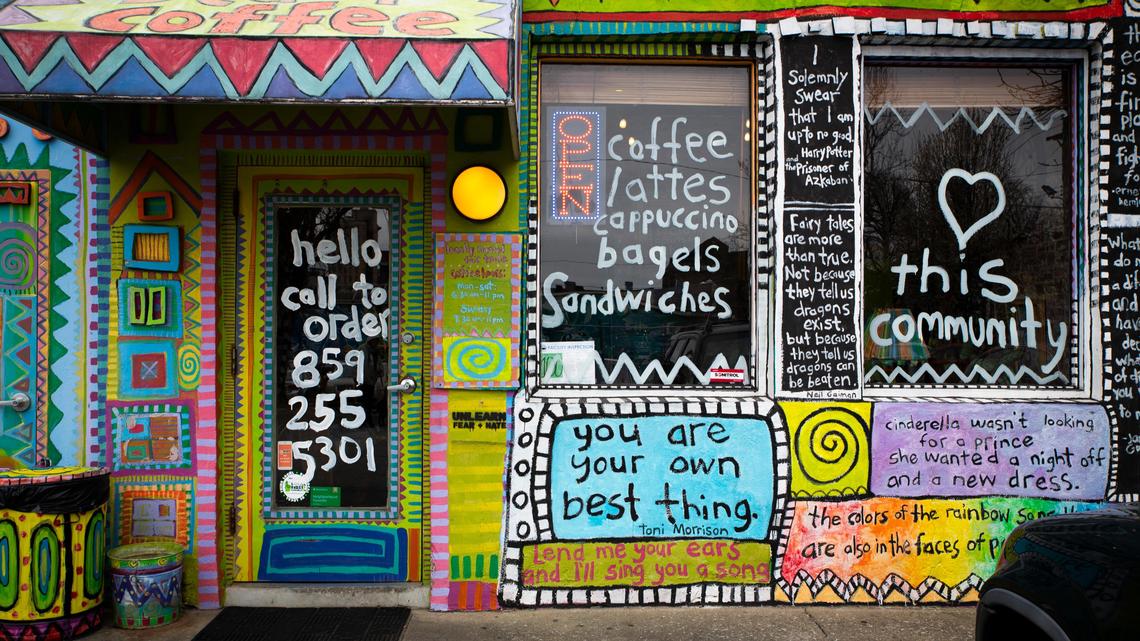 coffee
hello
call to
order
859
255
5301
coffeehours:
mon-sat:
Sunday
UNLEARN
FEAR + HATE
OPEN
coffee
lattes
cappuccino
bagels
Sandwiches
FACILITY INSPECTION
SONITROL
I
Solemnly
Swear
that I am
up to no good.
Harry Potter
and the Prisoner of
Azkaban
Fairy tales
are more
than true.
Not because
they tell us
dragons
exist,
but because
they tell us
dragons can
be beaten.
Neil Gaiman
this
community
you are
your own
best thing.
Toni Morrison
Lend me your ears
and I'll sing you a song
cinderella wasn't looking
for a prince
she wanted a night off
and a new dress.
the colors of the rainbow so
are also in the faces of